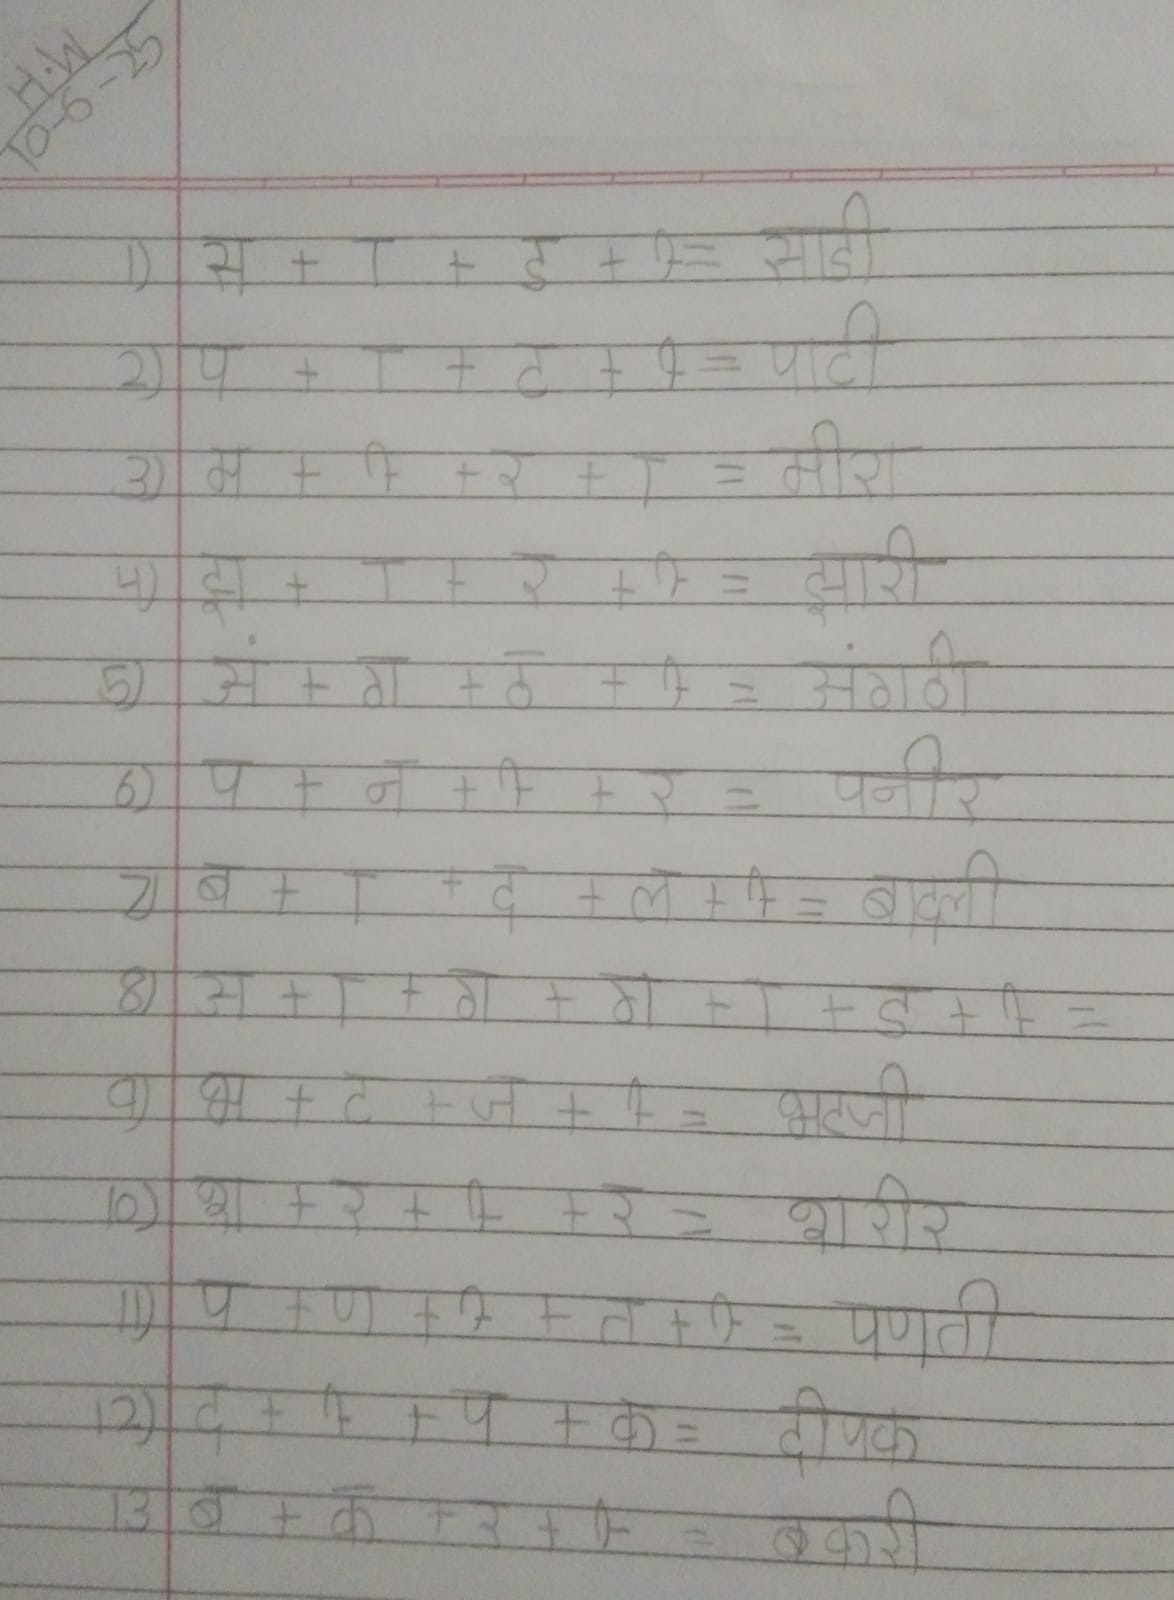 H.W
10-6-25
1) स + ा + ड + ी = साडी
2) प + ा + ट + ी = पाटी
3) म + ी + र + ा = मीरा
4) झ + ा + र + ी = झारी
5) अं + ग + ठ + ी = अंगठी
6) प + न + ी + र = पनीर
7) ब + ा + द + ल + ी = बादली
8) अ + ा + ग + ग + ा + ड + ी =
9) भ + ट + ज + ी = भटजी
10) श + र + ी + र = शरीर
11) प + ण + ी + त + ी = पणती
12) द + ी + प + क = दीपक
13 ब + क + र + ी = बकरी